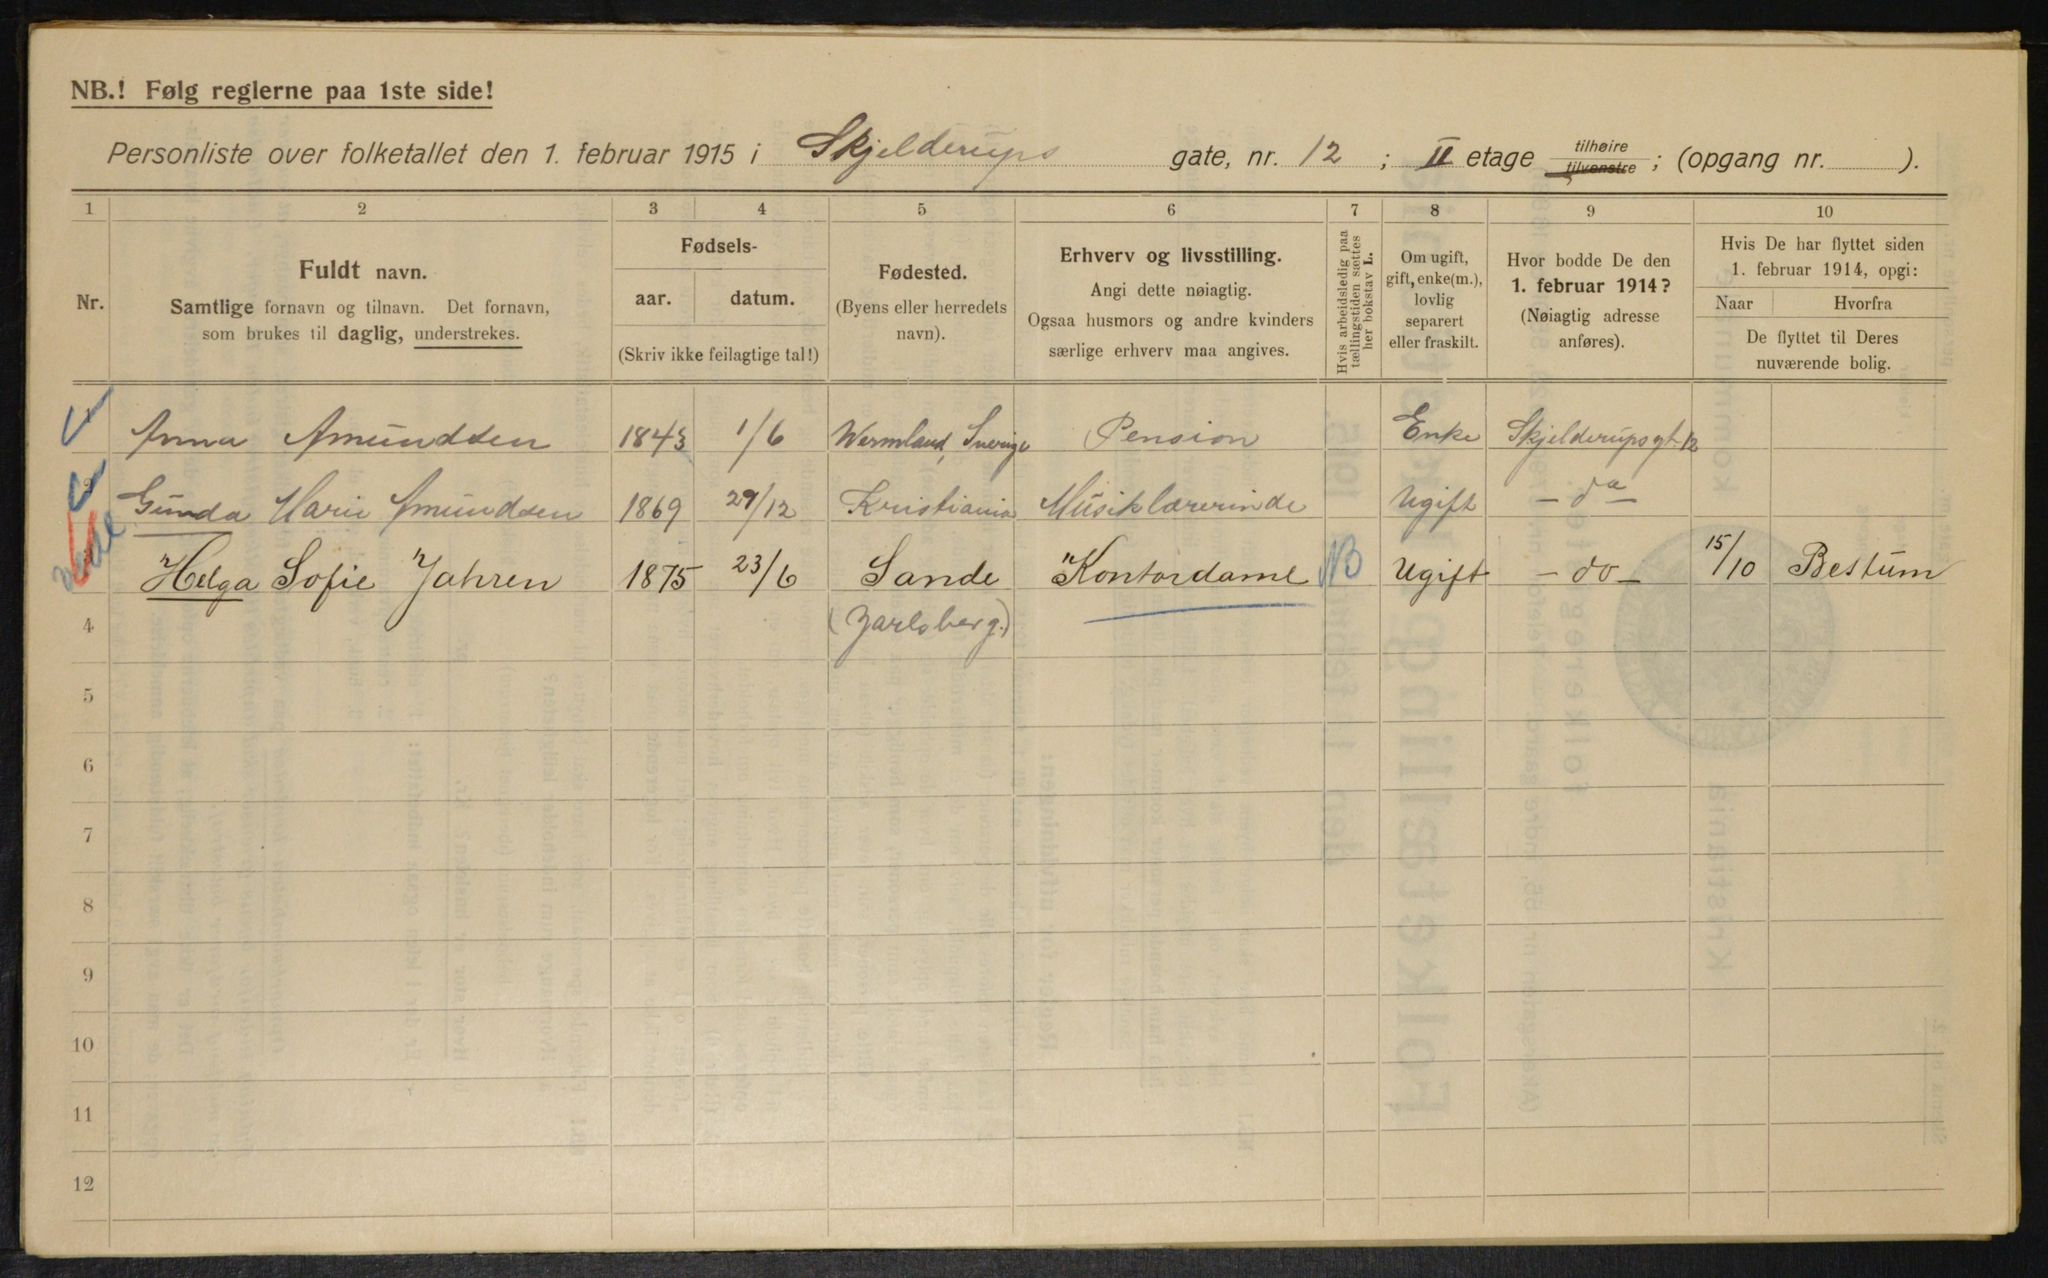 NB.! Følg reglerne paa 1ste side!
Personliste over folketallet den 1. februar 1915 i Skjelderups gate, nr. 12 ; II etage tilhøire tilvenstre ; (opgang nr. ).
1 2 3 4 5 6 7 8 9 10
Nr.
Fuldt navn.
Samtlige fornavn og tilnavn. Det fornavn,
som brukes til daglig, understrekes.
Fødsels-
aar. datum.
(Skriv ikke feilagtige tal!)
Fødested.
(Byens eller herredets
navn).
Erhverv og livsstilling.
Angi dette nøiagtig.
Ogsaa husmors og andre kvinders
særlige erhverv maa angives.
Hvis arbeidsledig paa
tællingstiden sættes
her bokstav L.
Om ugift,
gift, enke(m.),
lovlig
separert
eller fraskilt.
Hvor bodde De den
1. februar 1914?
(Nøiagtig adresse
anføres).
Hvis De har flyttet siden
1. februar 1914, opgi:
Naar Hvorfra
De flyttet til Deres
nuværende bolig.
1 Anna Amundsen 1843 1/6 Wermland, Sverige Pension Enke Skjelderupsgt. 12
2 Gunda Marie Amundsen 1869 29/12 Kristiania Musiklærerinde Ugift – do –
Helga Sofie Jahren 1875 23/6 Sande Kontordame NB Ugift – do – 15/10 Bestum
4 (Jarlsberg.)
5
6
7
8
9
10
11
12